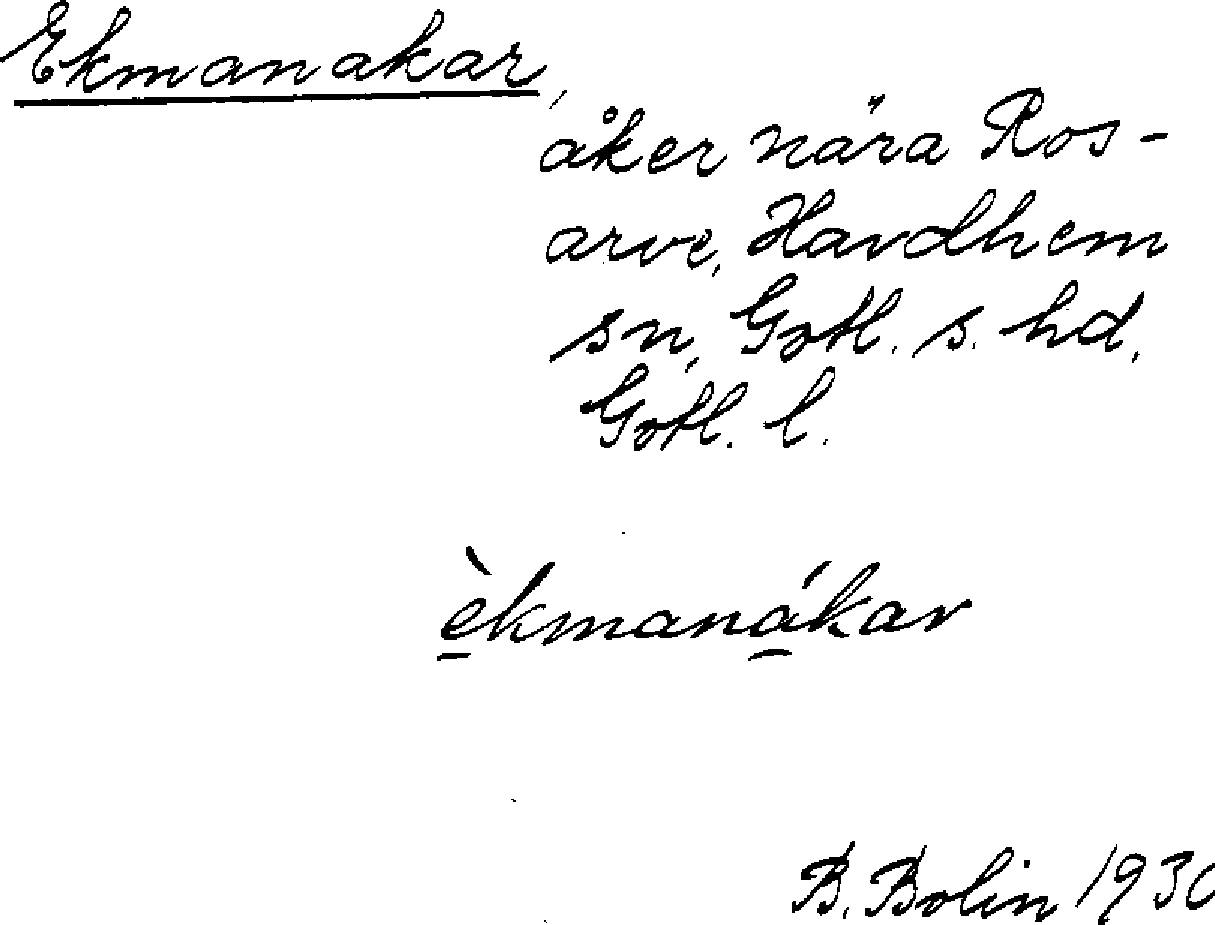 Ekmanakar,
åker nära Ros-
arve, Havdhem
sn, Gotl. s. hd,
Gotl. l.
èkmanákar
B. Bolin 1930